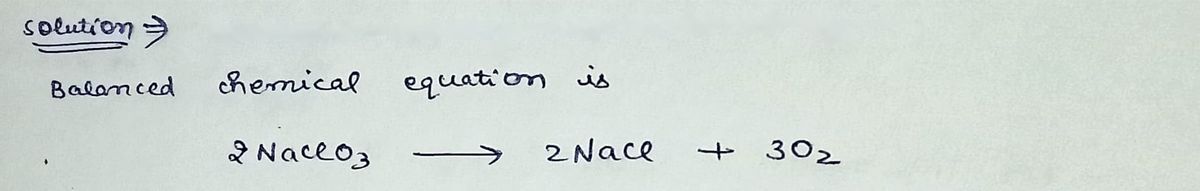 Solution ⇒
Balanced chemical equation is
2 NaClO3 ⟶ 2 NaCl + 3O2